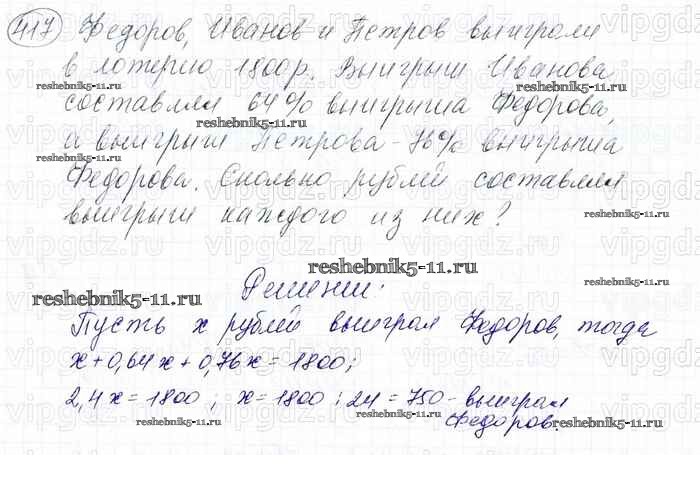 417 Федоров, Иванов и Петров выиграли
в лотерею 1800р. Выигрыш Иванова
составлял 64% выигрыша Федорова,
а выигрыш Петрова - 76% выигрыша
Федорова. Сколько рублей составлял
выигрыш каждого из них?
Решение:
Пусть x рублей выиграл Федоров, тогда
x + 0,64x + 0,76x = 1800;
2,4x = 1800 ; x = 1800 : 24 = 750 - выиграл
Федоров.
reshebnik5-11.ru
vipgdz.ru